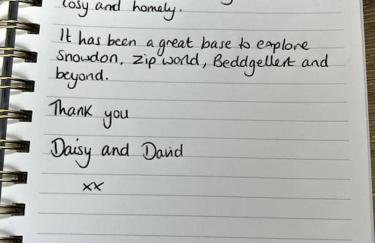 cosy and homely.
It has been a great base to explore
Snowdon, Zip world, Beddgellert and
beyond.
Thank you
Daisy and David
xx